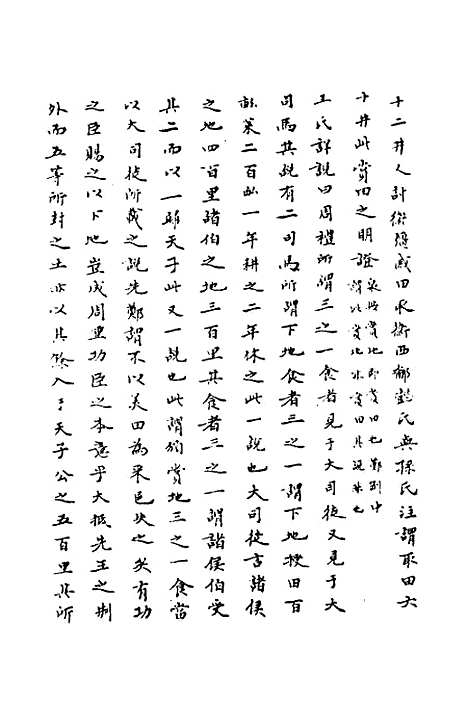 十二井人討衛疆戚田取衛西鄙懿氏與孫氏注謂取田六
十井此賞田之明證
案此賞地即賞田也鄭剛中
謂此賞地非賞田其說非也
王氏詳說曰周禮所謂三之一食者見于大司徒又見于大
司馬其說有二司馬所謂下地食者三之一謂下地授田百
畝萊二百畝一年耕之二年休之此一說也大司徒言諸侯
之地四百里諸伯之地三百里其食者三之一謂諸侯伯受
其二而以一歸天子此又一說也此謂頒賞地三之一食當
以大司徒所載之說先鄭謂不以美田為采邑失之矣有功
之臣賜之以下地豈成周里功臣之本意乎大抵先王之制
外而五等所封之土亦以其餘入于天子公之五百里其所